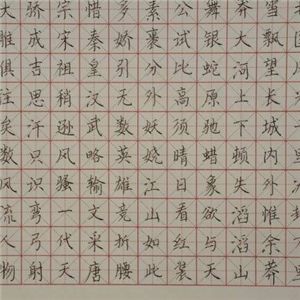 雪飘望长城内外惟余莽
莽大河上下顿失滔滔山
舞银蛇原驰蜡象欲与天
公试比高须晴日看红装
素裹分外妖娆江山如此
多娇引无数英雄竞折腰
惜秦皇汉武略输文采唐
宗宋祖稍逊风骚一代天
骄成吉思汗只识弯弓射
大雕俱往矣数风流人物